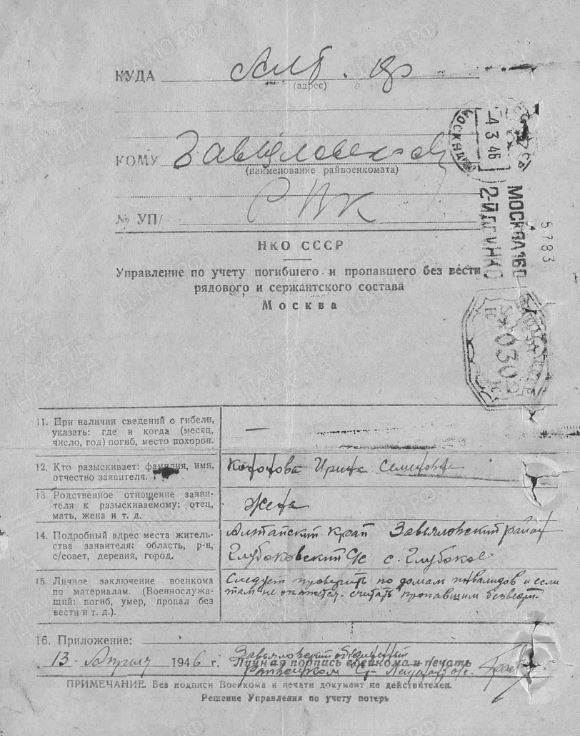 КУДА Алт. кр
(адрес)
КОМУ Завьяловский
(наименование райвоенкомата)
РВК
№ УП/
НКО СССР
Управление по учету погибшего и пропавшего без вести
рядового и сержантского состава
Москва
МОСКВА
-4 3 46
МОСКВА 160
5783
0302
11. При наличии сведений о гибели,
указать: где и когда (месяц,
число, год) погиб, место похорон.
—
12. Кто разыскивает: фамилия, имя,
отчество заявителя.
Ирина Семеновна
13. Родственное отношение заяви-
теля к разыскиваемому: отец,
мать, жена и т. д.
Жена
14. Подробный адрес места житель-
ства заявителя: область, р-н,
с/совет, деревня, город.
Алтайский край Завьяловский район
Глубоковский с/с с. Глубокое
15. Личное заключение военкома
по материалам. (Военнослужа-
щий: погиб, умер, пропал без
вести и т. д.).
Следует проверить по домам инвалидов и если
там не окажется считать пропавшим безвести
16. Приложение:
13 Апреля 1946 г.
Завьяловский
Личная подпись военкома и печать
ПРИМЕЧАНИЕ. Без подписи Военкома и печати документ не действителен.
Решение Управления по учету потерь